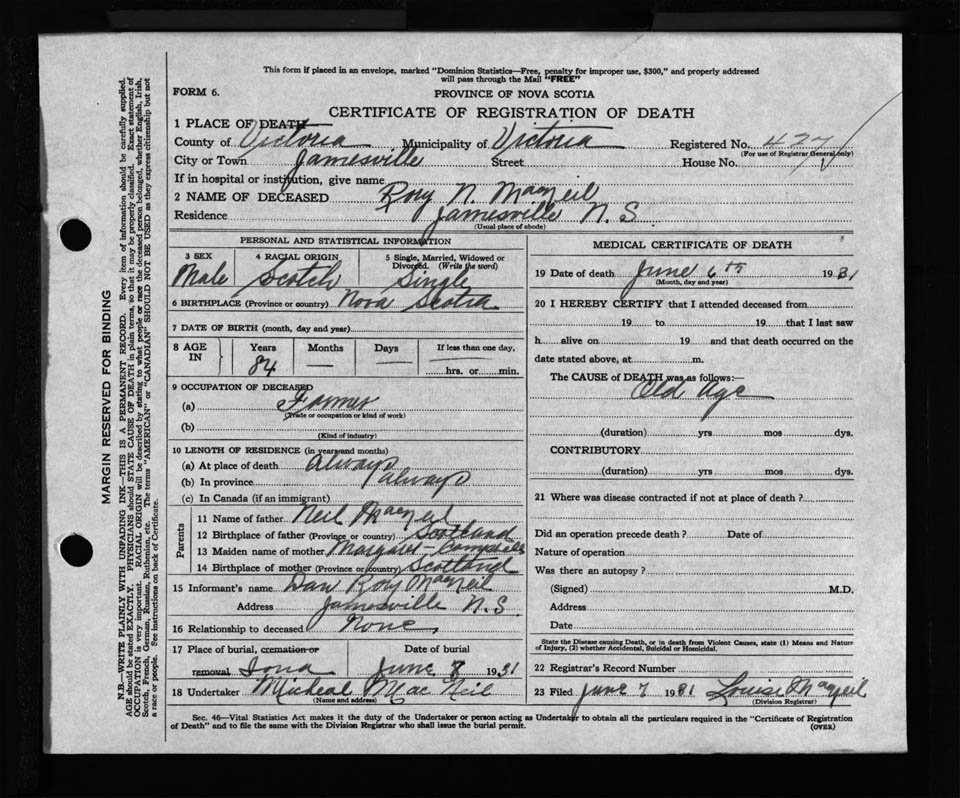 This form if placed in an envelope, marked "Dominion Statistics—Free, penalty for improper use, $300," and properly addressed
will pass through the Mail "FREE"
FORM 6.
PROVINCE OF NOVA SCOTIA
CERTIFICATE OF REGISTRATION OF DEATH
1 PLACE OF DEATH
County of Victoria, Municipality of Victoria Registered No. 427
(For use of Registrar General only)
City or Town Jamesville Street House No.
If in hospital or institution, give name
2 NAME OF DECEASED Rory N. MacNeil
Residence Jamesville N. S.
(Usual place of abode)
PERSONAL AND STATISTICAL INFORMATION
3 SEX 4 RACIAL ORIGIN 5 Single, Married, Widowed or
Divorced. (Write the word)
Male Scotch Single
6 BIRTHPLACE (Province or country) Nova Scotia
7 DATE OF BIRTH (month, day and year)
8 AGE IN Years Months Days If less than one day,
84 — hrs. or min.
9 OCCUPATION OF DECEASED
(a) Farmer
(Trade or occupation or kind of work)
(b)
(Kind of industry)
10 LENGTH OF RESIDENCE (in years and months)
(a) At place of death always
(b) In province always
(c) In Canada (if an immigrant)
Parents
11 Name of father Neil MacNeil
12 Birthplace of father (Province or country) Scotland
13 Maiden name of mother Margaret - Campbell
14 Birthplace of mother (Province or country) Scotland
15 Informant's name Dan Rory MacNeil
Address Jamesville N. S
16 Relationship to deceased None
17 Place of burial, cremation or removal Iona Date of burial June 8 1931
18 Undertaker Micheal Mac Neil
(Name and address)
MEDICAL CERTIFICATE OF DEATH
19 Date of death June 6th 1931
(Month, day and year)
20 I HEREBY CERTIFY that I attended deceased from
19 to 19 that I last saw
h alive on 19 and that death occurred on the
date stated above, at m.
The CAUSE of DEATH was as follows:—
Old Age
(duration) yrs mos dys.
CONTRIBUTORY
(duration) yrs. mos dys.
21 Where was disease contracted if not at place of death ?
Did an operation precede death ? Date of
Nature of operation
Was there an autopsy ?
(Signed) M.D.
Address
Date
State the Disease causing Death, or in death from Violent Causes, state (1) Means and Nature
of Injury, (2) whether Accidental, Suicidal or Homicidal.
22 Registrar's Record Number
23 Filed June 7 1931 Louise MacNeil
(Division Registrar)
Sec. 46—Vital Statistics Act makes it the duty of the Undertaker or person acting as Undertaker to obtain all the particulars required in the "Certificate of Registration
of Death" and to file the same with the Division Registrar who shall issue the burial permit.
(OVER)
MARGIN RESERVED FOR BINDING
N.B.—WRITE PLAINLY WITH UNFADING INK—THIS IS A PERMANENT RECORD. Every item of information should be carefully supplied.
AGE should be stated EXACTLY. PHYSICIANS should STATE CAUSE OF DEATH in plain terms, so that it may be properly classified. Exact statement of
OCCUPATION is very important. RACIAL ORIGIN will be described by stating to what people or race the deceased person belonged, whether English, Irish,
Scotch, French, German, Russian, Ruthenian, etc. The terms "AMERICAN" or "CANADIAN" SHOULD NOT BE USED as they express citizenship but not
a race or people. See instructions on back of Certificate.